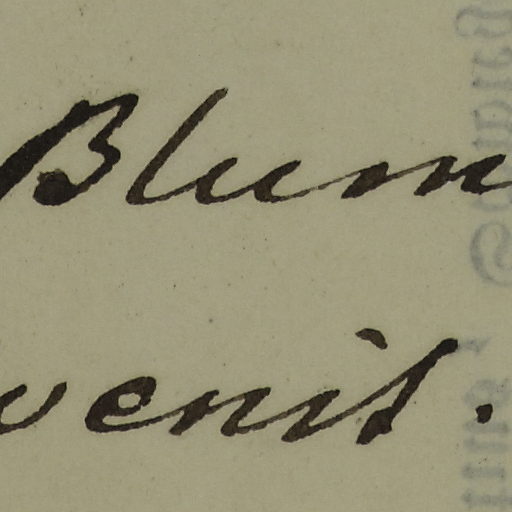 Blum
venit.